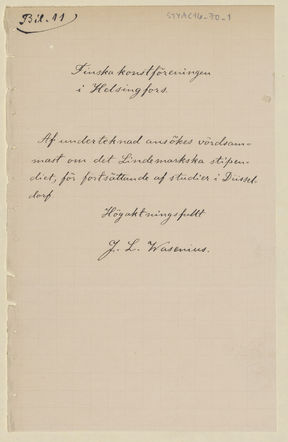 Bil. 11
STYAC16-70-1
Finska konstföreningen
i Helsingfors.
Af undertecknad ansökes vördsam-
mast om det Lindemarkska stipen-
diet, för fortsättande af studier i Düssel
dorf
Högaktningsfullt
J. L. Wasenius.